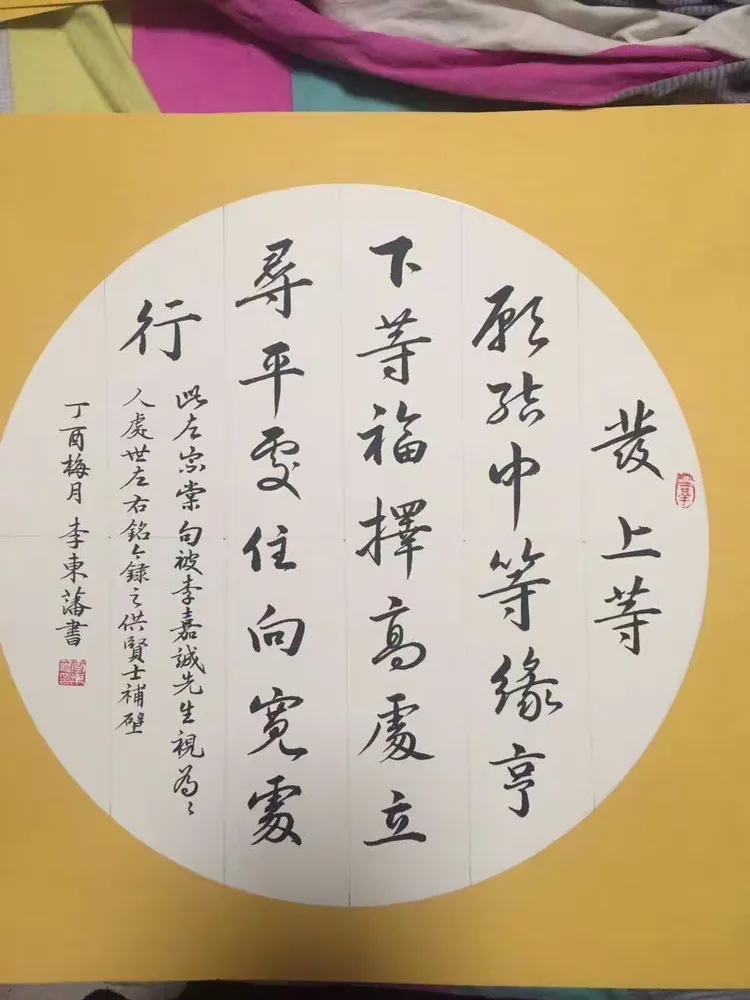 發上等
願結中等緣亨
下等福擇高處立
尋平處住向寬處
行
此左宗棠句被李嘉誠先生視為〻
人處世左右銘今錄之供賢士補壁
丁酉梅月李東藩書